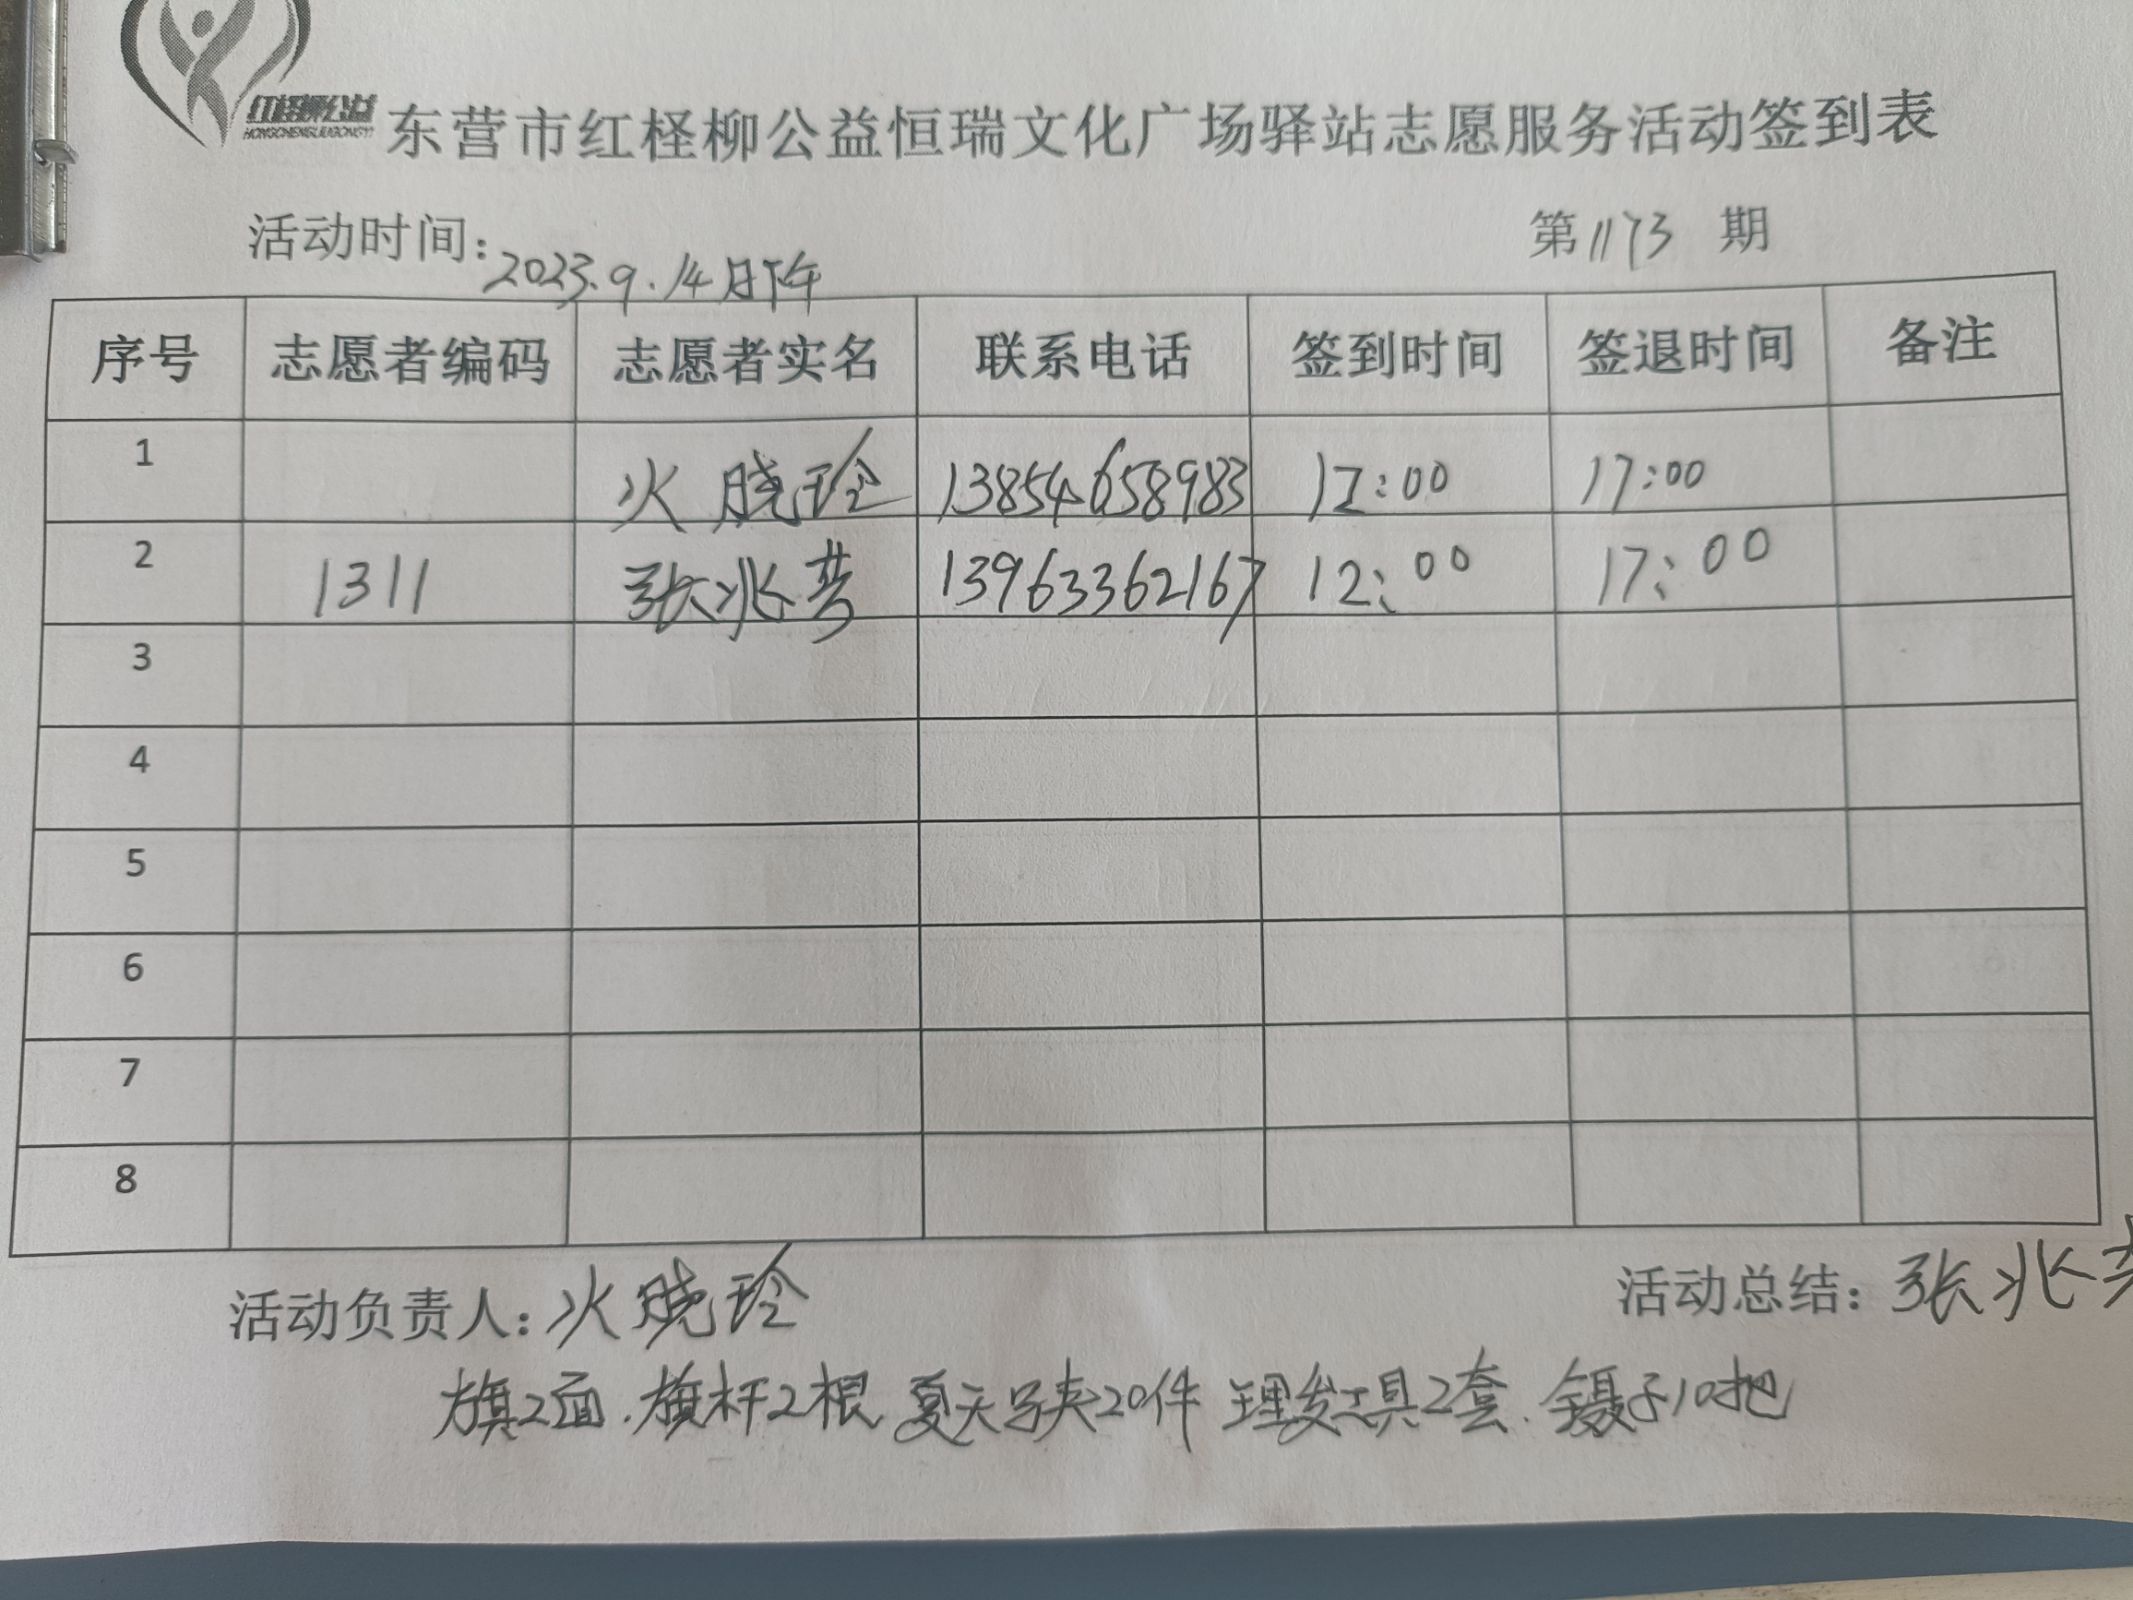 红柽柳公益
HONGCHENGLIUGONGYI
东营市红柽柳公益恒瑞文化广场驿站志愿服务活动签到表
活动时间：2023.9.14日下午 第1173期
序号 志愿者编码 志愿者实名 联系电话 签到时间 签退时间 备注
1 火晓玲 13854658983 12:00 17:00
2 1311 张兆芸 13963362167 12:00 17:00
3
4
5
6
7
8
活动负责人：火晓玲 活动总结：张兆
旗2面.旗杆2根 夏天马夹20件 理发工具2套.镊子10把